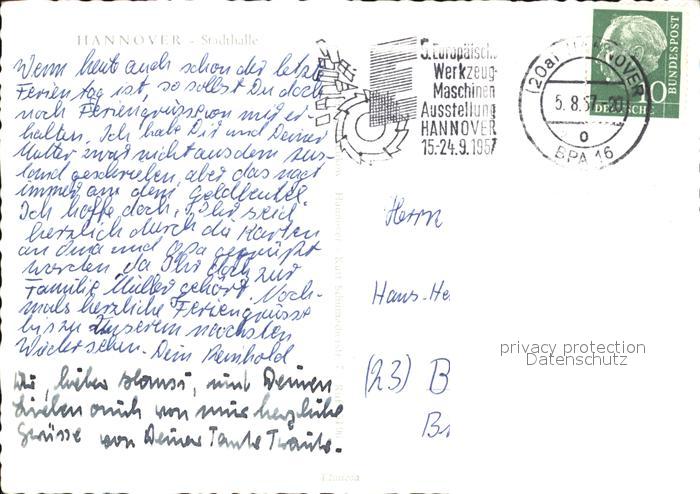 HANNOVER - Stadthalle
Wenn heut auch schon der letzte
Ferientag ist, so sollst Du doch
noch Feriengrüsse von mir er-
halten. Ich habe Dir und Deiner
Mutter zwar nicht aus dem Aus-
land geschrieben, aber das nagt
immer am dem Geldbeutel.
Ich hoffe doch, Ihr seid
herzlich durch die Karten
an Oma und Opa gegrüßt
worden, da Ihr doch zur
Familie Müller gehört. Noch-
mals herzliche Feriengrüsse
bis zu unserem nächsten
Wiedersehen. Dein Reinhold
Dir, lieber Hansi, und Deinen
Lieben auch von mir herzliche
Grüsse von Deiner Tante Traute.
5. Europäische
Werkzeug-
Maschinen
Ausstellung
HANNOVER
15.-24.9.1957
(20a) HANNOVER
5.8.57
o
BPA 16
DEUTSCHE
BUNDESPOST
Herrn
Hans-He
(23) B
privacy protection
Datenschutz